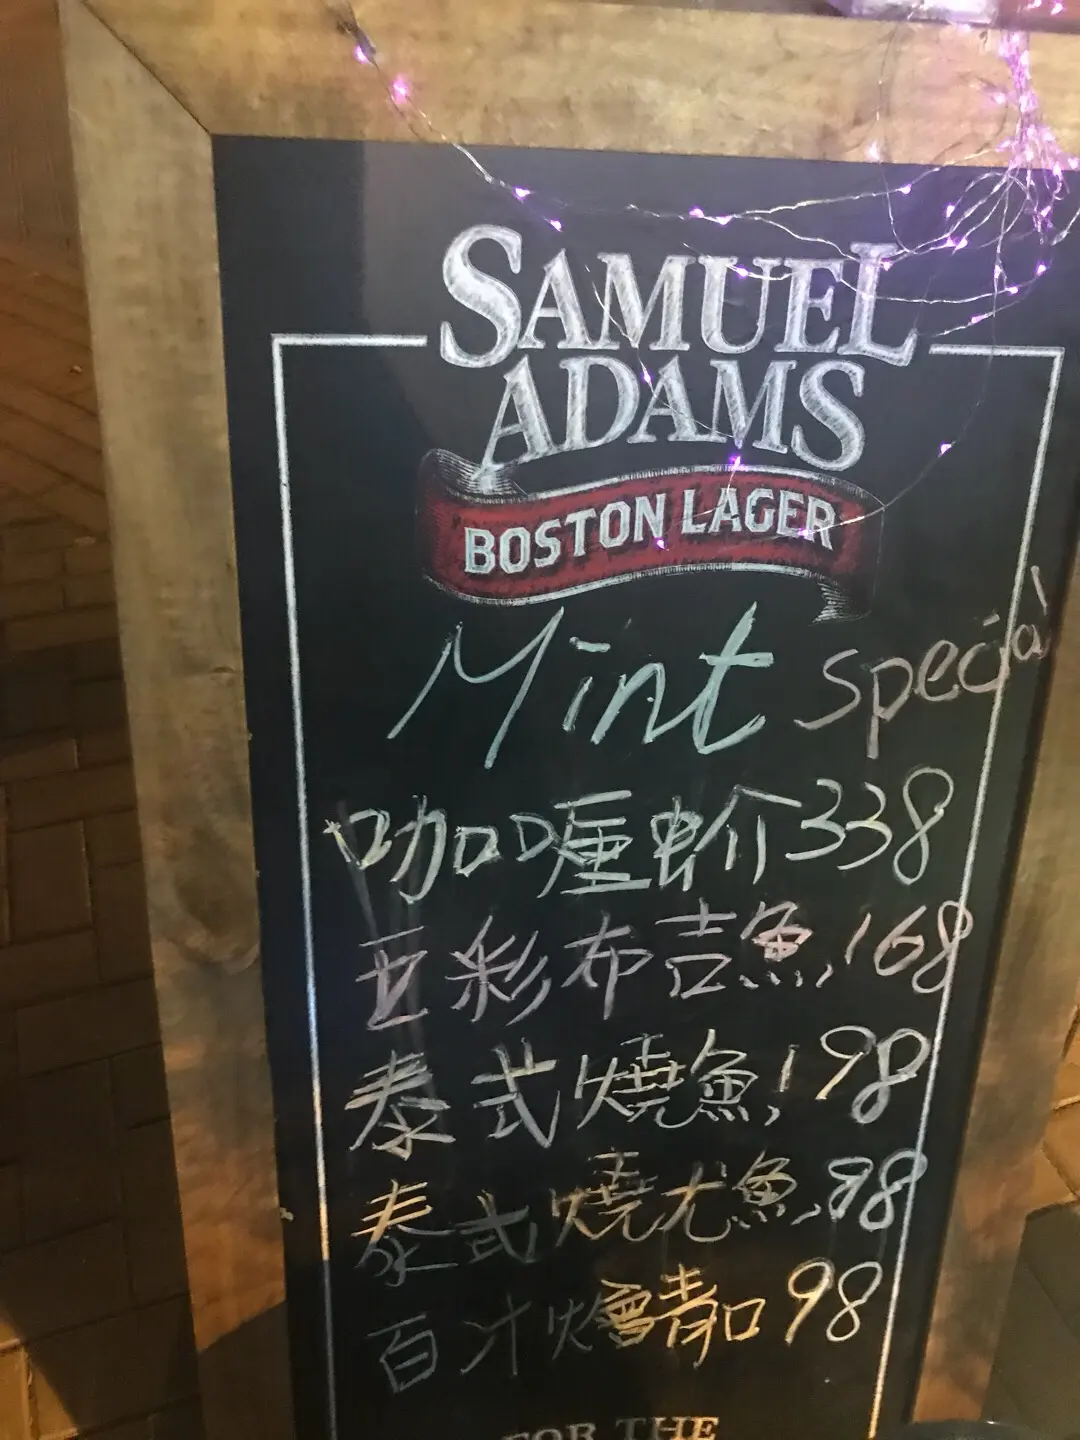 SAMUEL
ADAMS
BOSTON LAGER
Mint special
咖喱蚧 338
豆彩布吉魚,168
泰式燒魚,198
泰式燒尤魚,98
百汁燴青口 98
FOR THE